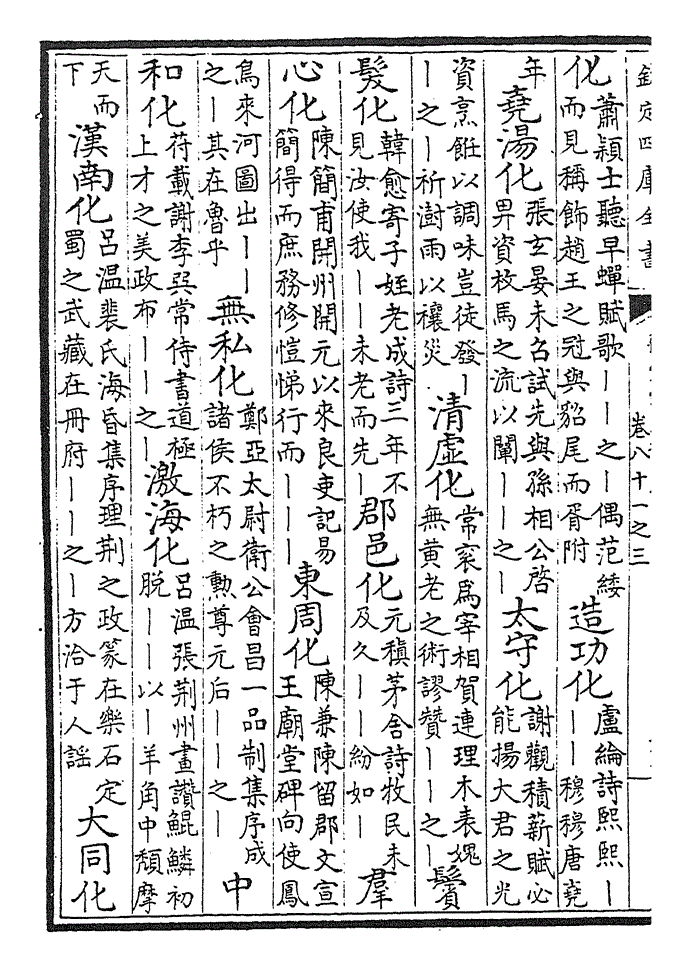 欽定四庫全書 卷八十一之三
化蕭穎士聽早蟬賦歌丨丨之丨偶范緌而見稱飾趙王之冠與貂尾而胥附造功化盧綸詩熙熙丨丨丨穆穆唐堯
年堯湯化張玄晏未召試先與孫相公啓畀資枚馬之流以闡丨丨之丨太守化謝觀積薪賦必能揚大君之光
資烹飪以調味豈徒發丨丨之丨祈澍雨以禳災清虛化常袞爲宰相賀連理木表媿無黄老之術謬贊丨丨之丨鬢
髮化韓愈寄子姪老成詩三年不見汝使我丨丨未老而先丨郡邑化元稹茅舍詩牧民未及久丨丨紛如丨羣
心化陳簡甫開州開元以來良吏記易簡得而庶務修愷悌行而丨丨丨東周化陳兼陳留郡文宣王廟堂碑向使鳳
鳥來河圖出丨丨之丨其在魯乎無私化鄭亞太尉衛公會昌一品制集序成諸侯不朽之勲尊元后丨丨之丨中
和化苻載謝李巽常侍書道極上才之美政布丨丨之丨激海化呂溫張荆州畫讚鯤鱗初脫丨丨以丨羊角中頹摩
天而下漢南化呂溫裴氏海昏集序理荆之政篆在樂石定蜀之武藏在冊府丨丨之丨方洽于人謡大同化